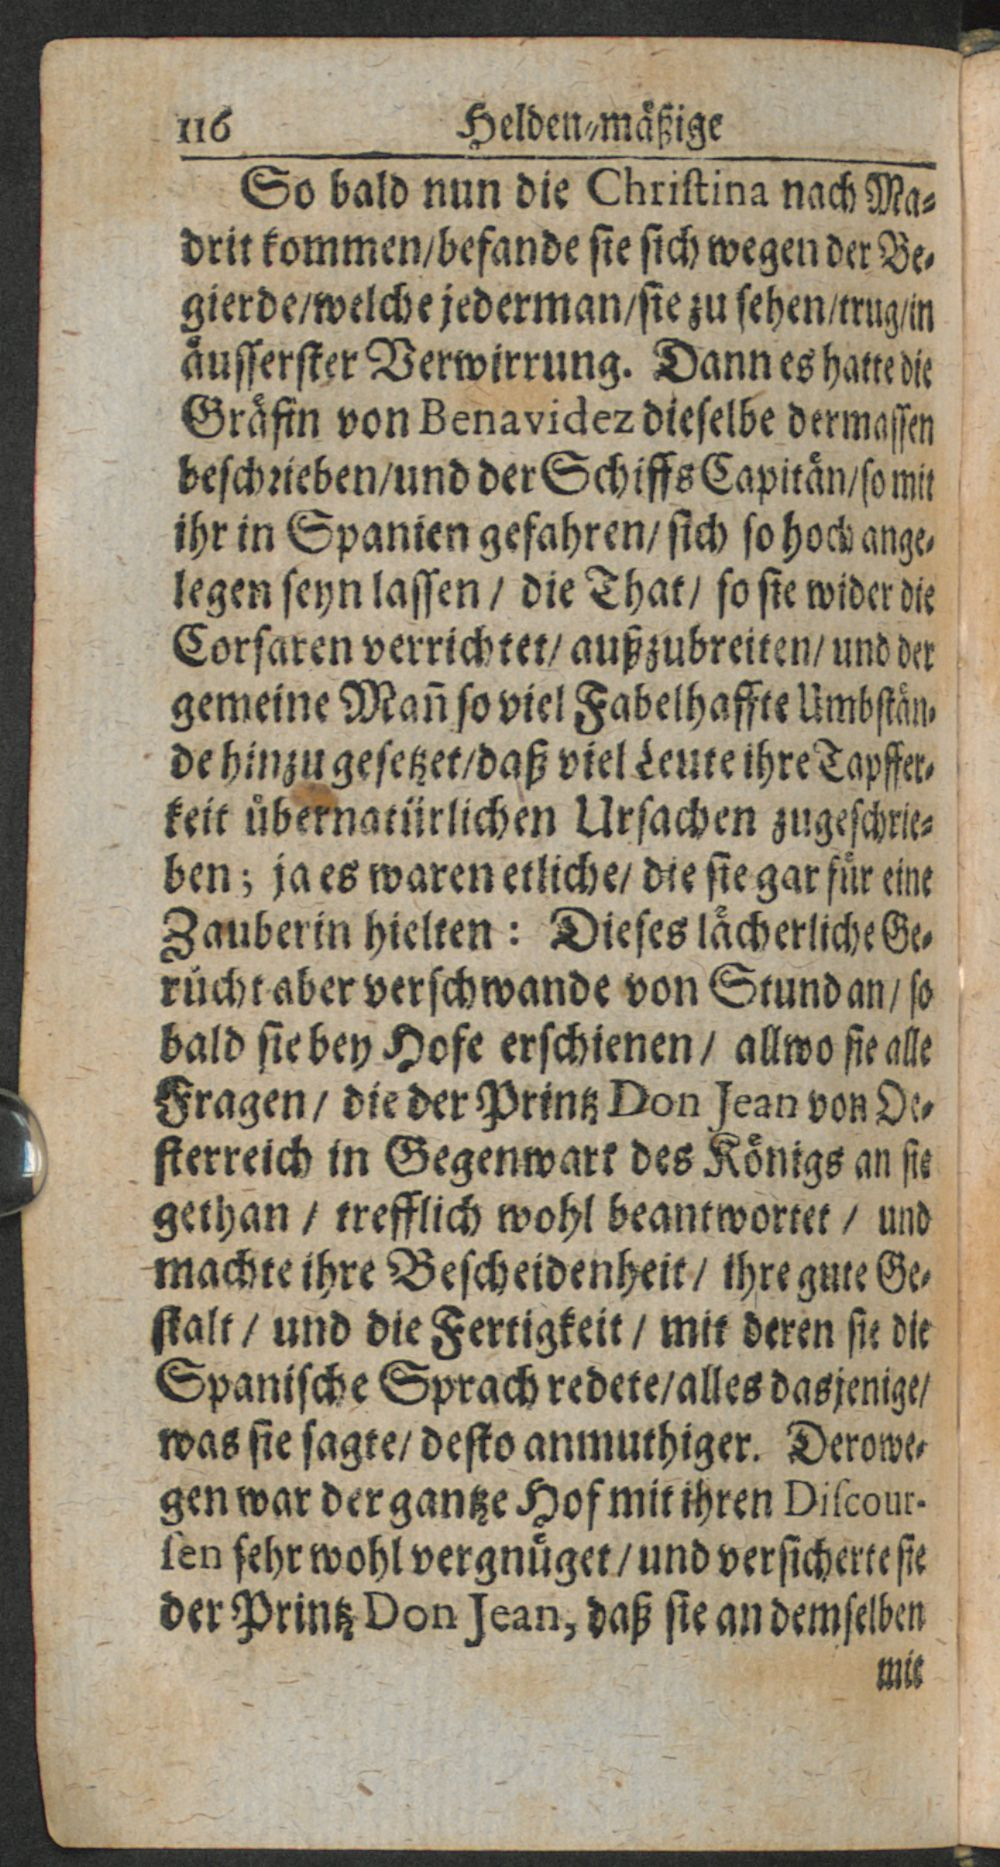 116 Helden-mäßige
So bald nun die Christina nach Ma-
drit kommen/befande sie sich wegen der Be-
gierde/welche jederman/sie zu sehen/trug/in
äusserster Verwirrung. Dann es hatte die
Gräfin von Benavidez dieselbe dermassen
beschrieben/und der Schiffs Capitän/so mit
ihr in Spanien gefahren/ sich so hoch ange-
legen seyn lassen / die That/ so sie wider die
Corsaren verrichtet/ außzubreiten/ und der
gemeine Mañ so viel Fabelhaffte Umbstän-
de hinzu gesetzet/daß viel Leute ihre Tapffer-
keit übernatürlichen Ursachen zugeschrie-
ben; ja es waren etliche/ die sie gar für eine
Zauberin hielten: Dieses lächerliche Ge-
rücht aber verschwande von Stund an/ so
bald sie bey Hofe erschienen / allwo sie alle
Fragen / die der Printz Don Jean von Oe-
sterreich in Gegenwart des Königs an sie
gethan / trefflich wohl beantwortet / und
machte ihre Bescheidenheit / ihre gute Ge-
stalt / und die Fertigkeit / mit deren sie die
Spanische Sprach redete/alles dasjenige/
was sie sagte/ desto anmuthiger. Derowe-
gen war der gantze Hof mit ihren Discour-
sen sehr wohl vergnüget / und versicherte sie
der Printz Don Jean, daß sie an demselben
mit